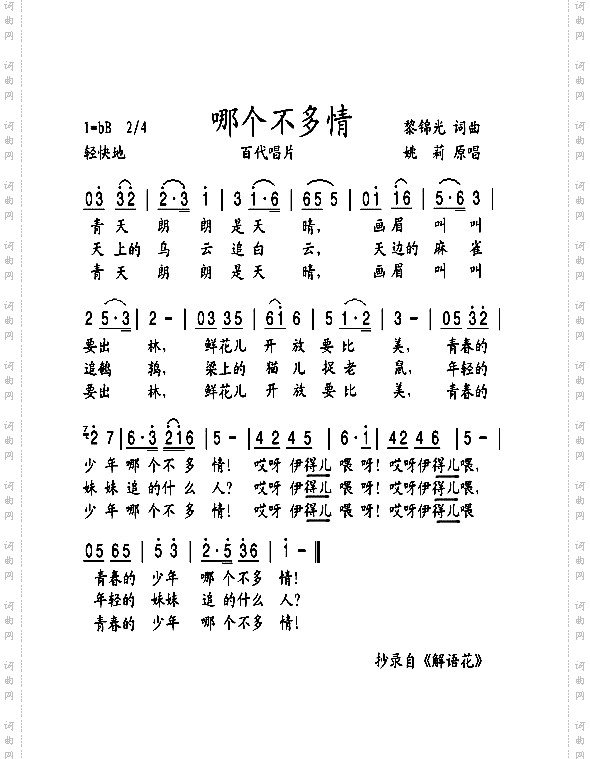 哪个不多情
1=bB 2/4 黎锦光 词曲
轻快地 百代唱片 姚 莉 原唱
03 32 | 2·3 1 | 3 1·6 | 655 5 | 01 16 | 5·6 3 |
青天 朗 朗是天 晴, 画眉 叫叫
天上的 乌 云追白 云, 天边的 麻 雀
青天 朗 朗是天 晴, 画眉 叫叫
2 5·3 | 2 - | 03 35 | 61 16 | 5 1·2 | 3 - | 05 32 |
要出 林, 鲜花儿 开 放 要比 美, 青春的
追鹌 鹑, 梁上的 猫 儿 捉老 鼠, 年轻的
要出 林, 鲜花儿 开 放 要比 美, 青春的
2 7 | 6·3 216 | 5 - | 42 45 | 6·1 | 42 46 | 5 - |
少年 哪个不多 情! 哎呀伊得儿 喂呀! 哎呀伊得儿 喂,
妹妹 追的什么 人? 哎呀伊得儿 喂呀! 哎呀伊得儿 喂,
少年 哪个不多 情! 哎呀伊得儿 喂呀! 哎呀伊得儿 喂
05 65 | 5 3 | 2·5 36 | 1 - ‖
青春的 少年 哪个不多 情!
年轻的 妹妹 追的什么 人?
青春的 少年 哪个不多 情!
抄录自《解语花》
词曲网